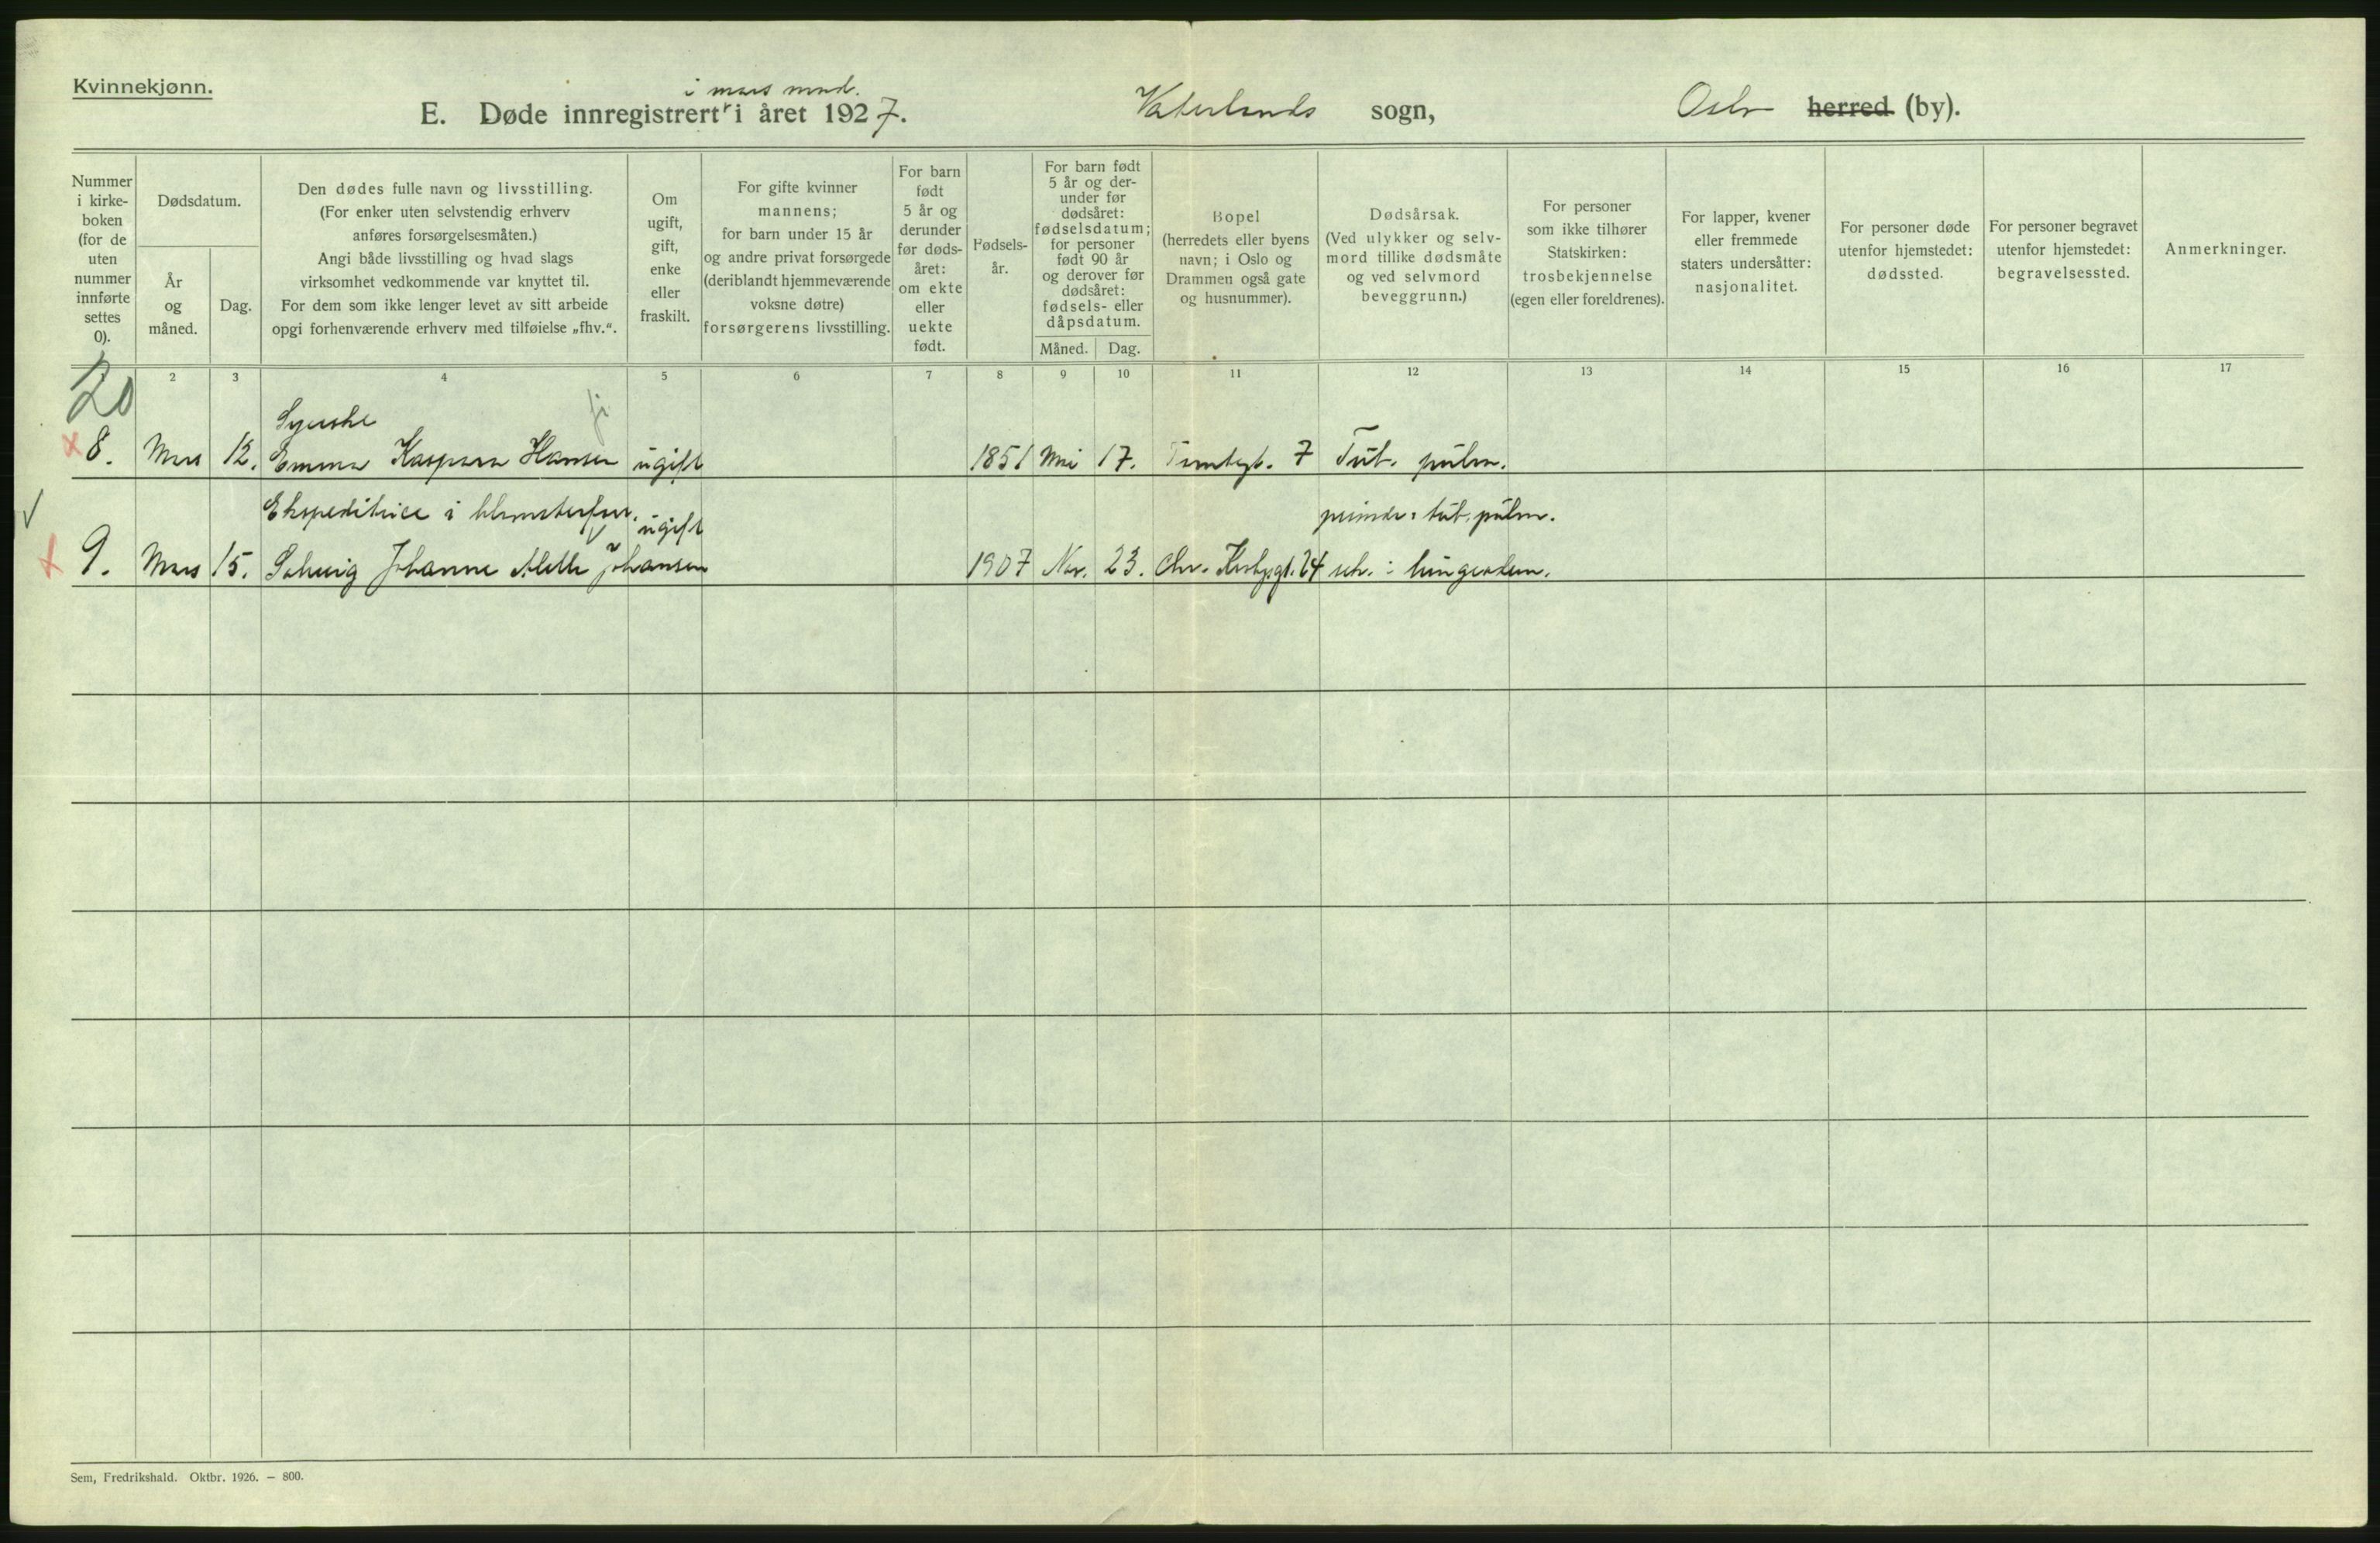 Kvinnekjønn.
i mars mnd.
E. Døde innregistrert i året 1927. Vaterlands sogn, Oslo herred (by).
Nummer i kirke-boken (for de uten nummer innførte settes 0).
Dødsdatum.
År og måned.
Dag.
Den dødes fulle navn og livsstilling.
(For enker uten selvstendig erhverv
anføres forsørgelsesmåten.)
Angi både livsstilling og hvad slags
virksomhet vedkommende var knyttet til.
For dem som ikke lenger levet av sitt arbeide
opgi forhenværende erhverv med tilføielse „fhv.“.
Om ugift, gift, enke eller fraskilt.
For gifte kvinner
mannens;
for barn under 15 år
og andre privat forsørgede
(deriblandt hjemmeværende
voksne døtre)
forsørgerens livsstilling.
For barn født 5 år og derunder før døds-året: om ekte eller uekte født.
Fødsels-år.
For barn født
5 år og der-
under før
dødsåret:
fødselsdatum;
for personer
født 90 år
og derover før
dødsåret:
fødsels- eller
dåpsdatum.
Måned. Dag.
Bopel
(herredets eller byens
navn; i Oslo og
Drammen også gate
og husnummer).
Dødsårsak.
(Ved ulykker og selv-
mord tillike dødsmåte
og ved selvmord
beveggrunn.)
For personer
som ikke tilhører
Statskirken:
trosbekjennelse
(egen eller foreldrenes).
For lapper, kvener
eller fremmede
staters undersåtter:
nasjonalitet.
For personer døde
utenfor hjemstedet:
dødssted.
For personer begravet
utenfor hjemstedet:
begravelsessted.
Anmerkninger.
20 2 3 4 5 6 7 8 9 10 11 12 13 14 15 16 17
Syerske
8. Mars 12. Emma Kaspara Hansen ugift 1851 Mai 17. Tomtegt. 7 Tub. pulm.
Ekspeditrice i blomsterforr. ugift primær: tub. pulm.
9. Mars 15. Solveig Johanne Alette Johansen 1907 Nov. 23. Chr. Krohgsgt. 24 sek.: lungeødem.
Sem, Fredrikshald. Oktbr. 1926. — 800.